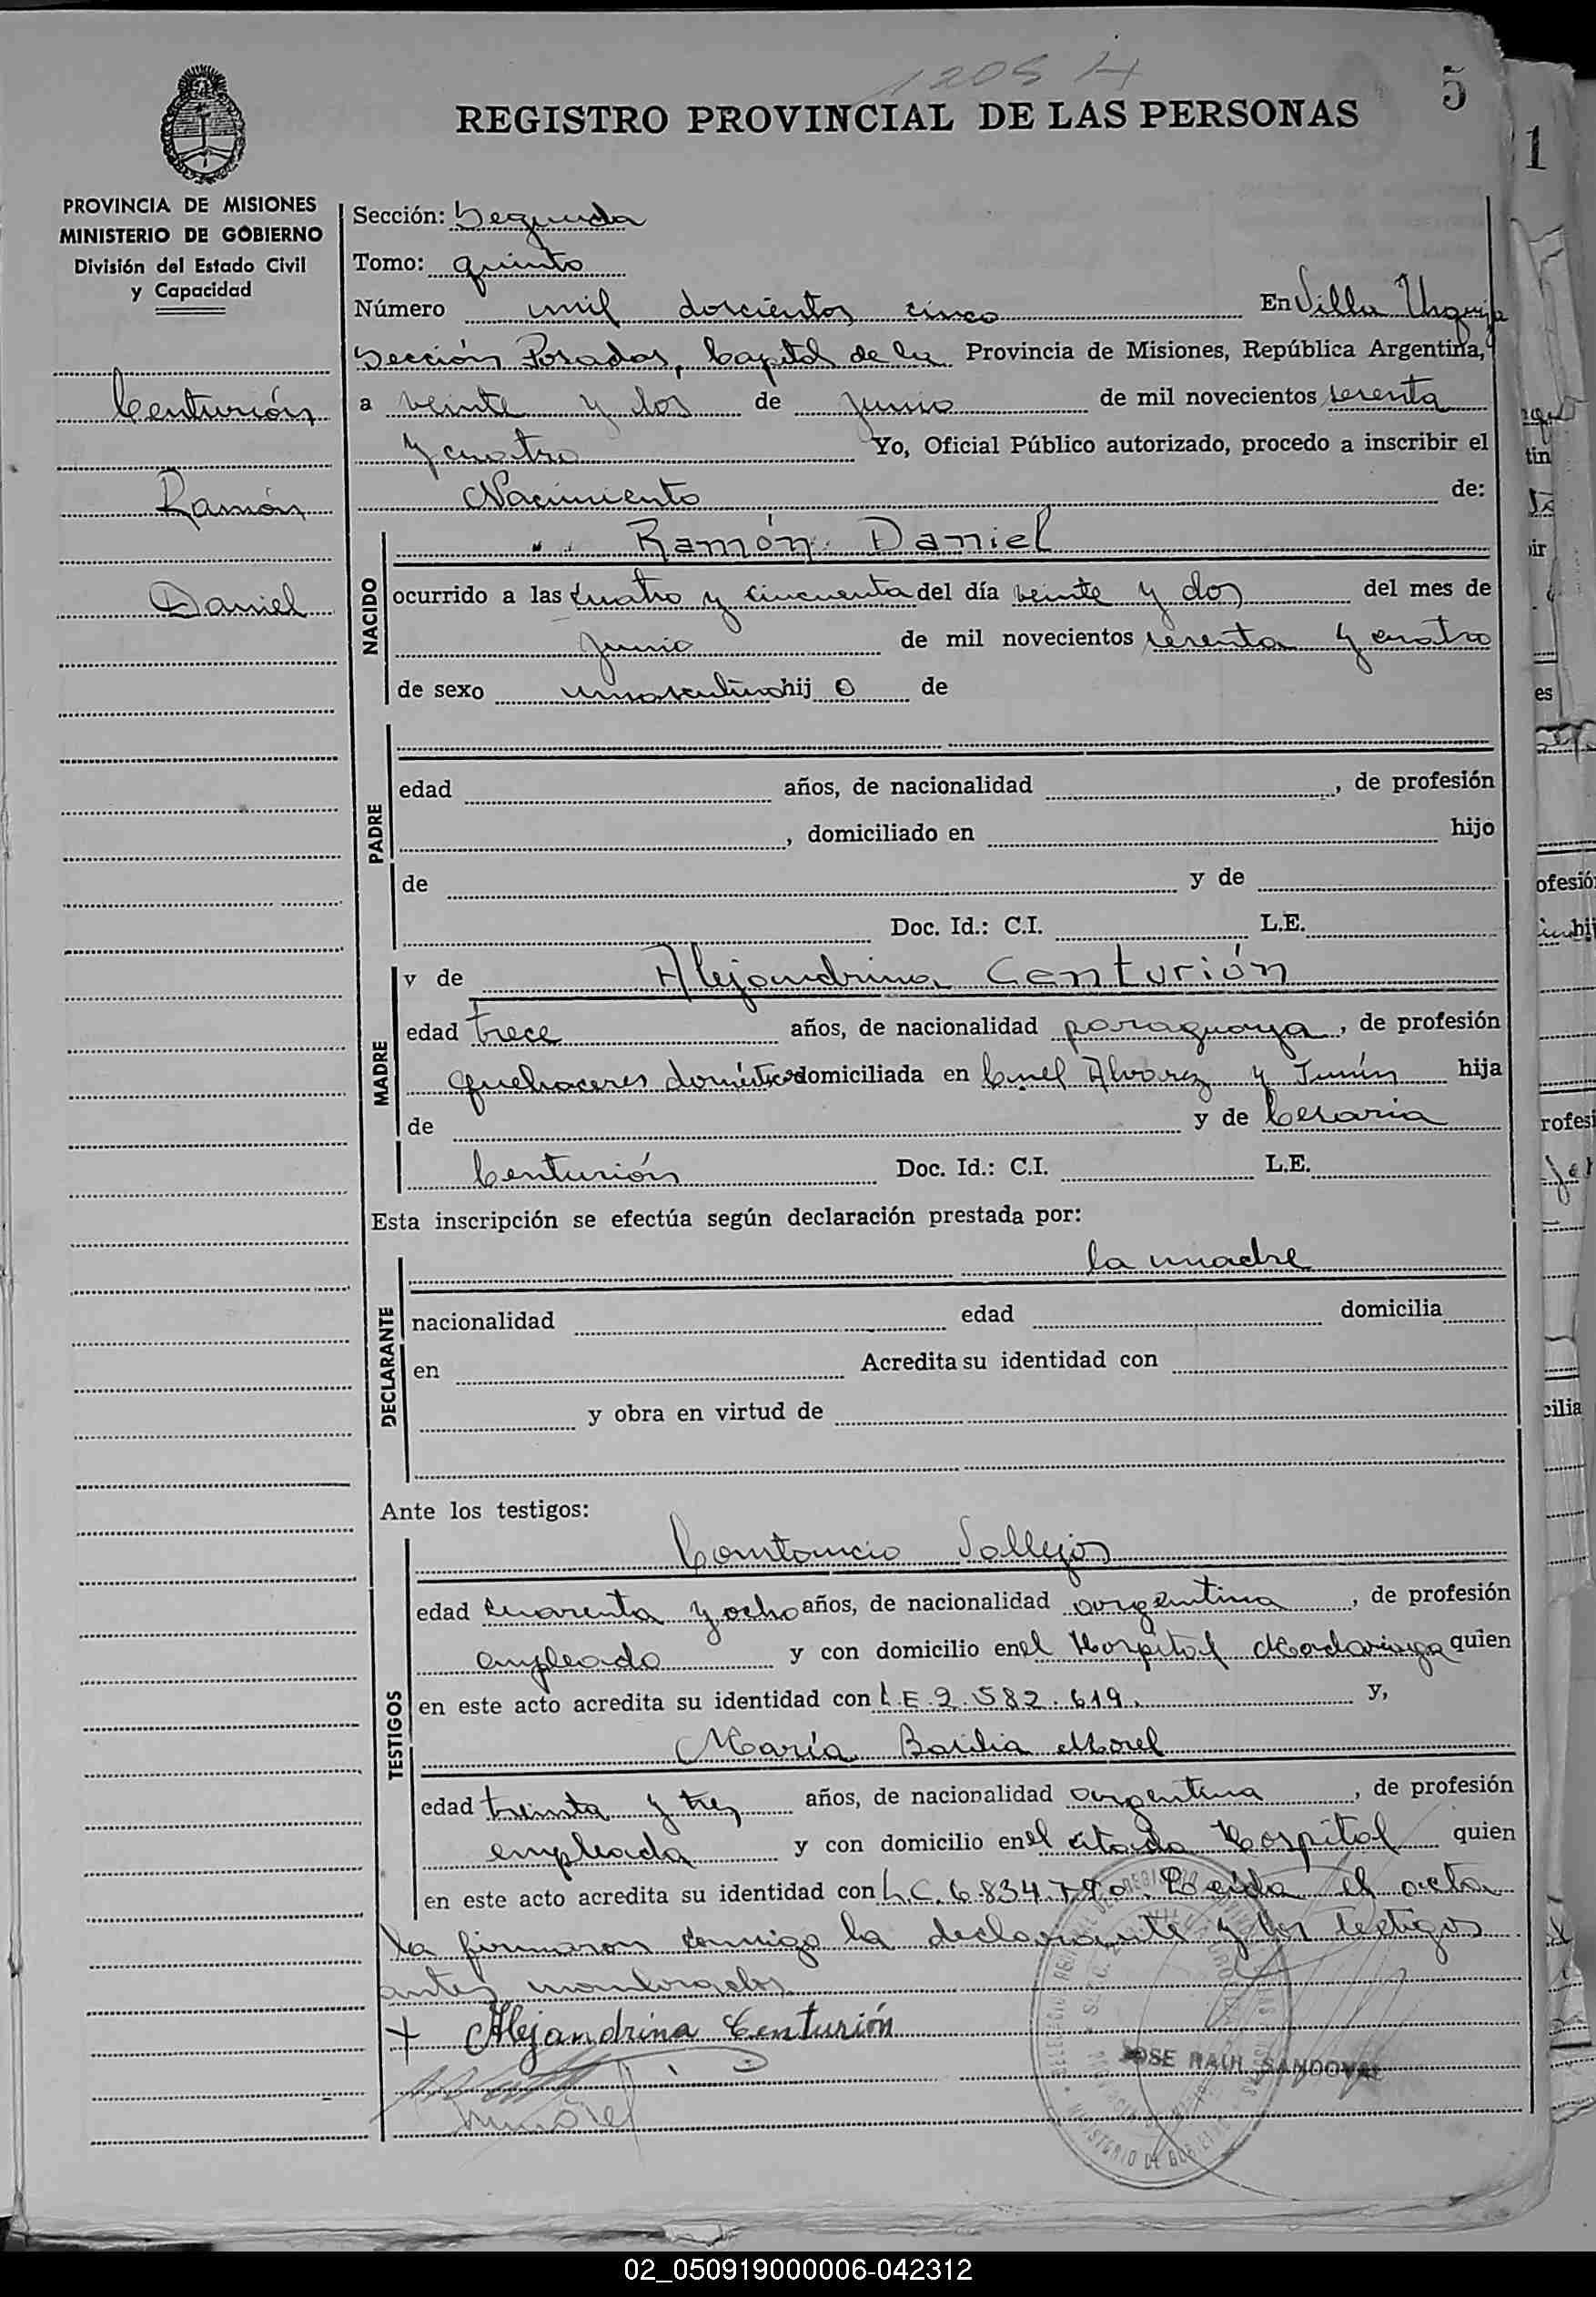 1205 H
5
REGISTRO PROVINCIAL DE LAS PERSONAS
1
PROVINCIA DE MISIONES
MINISTERIO DE GOBIERNO
División del Estado Civil
y Capacidad
Centurión
Ramón
Daniel
Sección: Segunda
Tomo: quinto
Número mil doscientos cinco En Villa Urquiza
Sección Posadas, Capital de la Provincia de Misiones, República Argentina,
a veinte y dos de junio de mil novecientos sesenta
y cuatro Yo, Oficial Público autorizado, procedo a inscribir el
Nacimiento de:
NACIDO
Ramón Daniel
ocurrido a las cuatro y cincuenta del día veinte y dos del mes de
junio de mil novecientos sesenta y cuatro
de sexo masculino hij o de
PADRE
edad años, de nacionalidad , de profesión
, domiciliado en hijo
de y de
Doc. Id.: C.I. L.E.
MADRE
y de Alejandrina Centurión
edad trece años, de nacionalidad paraguaya, de profesión
quehaceres domésticos domiciliada en Cnel Alvarez y Junín hija
de y de Cesaria
Centurión Doc. Id.: C.I. L.E.
Esta inscripción se efectúa según declaración prestada por:
DECLARANTE
la madre
nacionalidad edad domicilia
en Acredita su identidad con
y obra en virtud de
Ante los testigos:
TESTIGOS
Constancio Vallejos
edad cuarenta y ocho años, de nacionalidad argentina, de profesión
empleado y con domicilio en el Hospital Madariaga quien
en este acto acredita su identidad con L.E. 2.582.619. y,
María Basilia Morel
edad treinta y tres años, de nacionalidad argentina, de profesión
empleada y con domicilio en el citado Hospital quien
en este acto acredita su identidad con L.C. 6.834.790. Leída el acta
la firmaron conmigo la declarante y los testigos
antes nombrados
+ Alejandrina Centurión
JOSE RAUL SANDOVAL
Morel
02_050919000006-042312